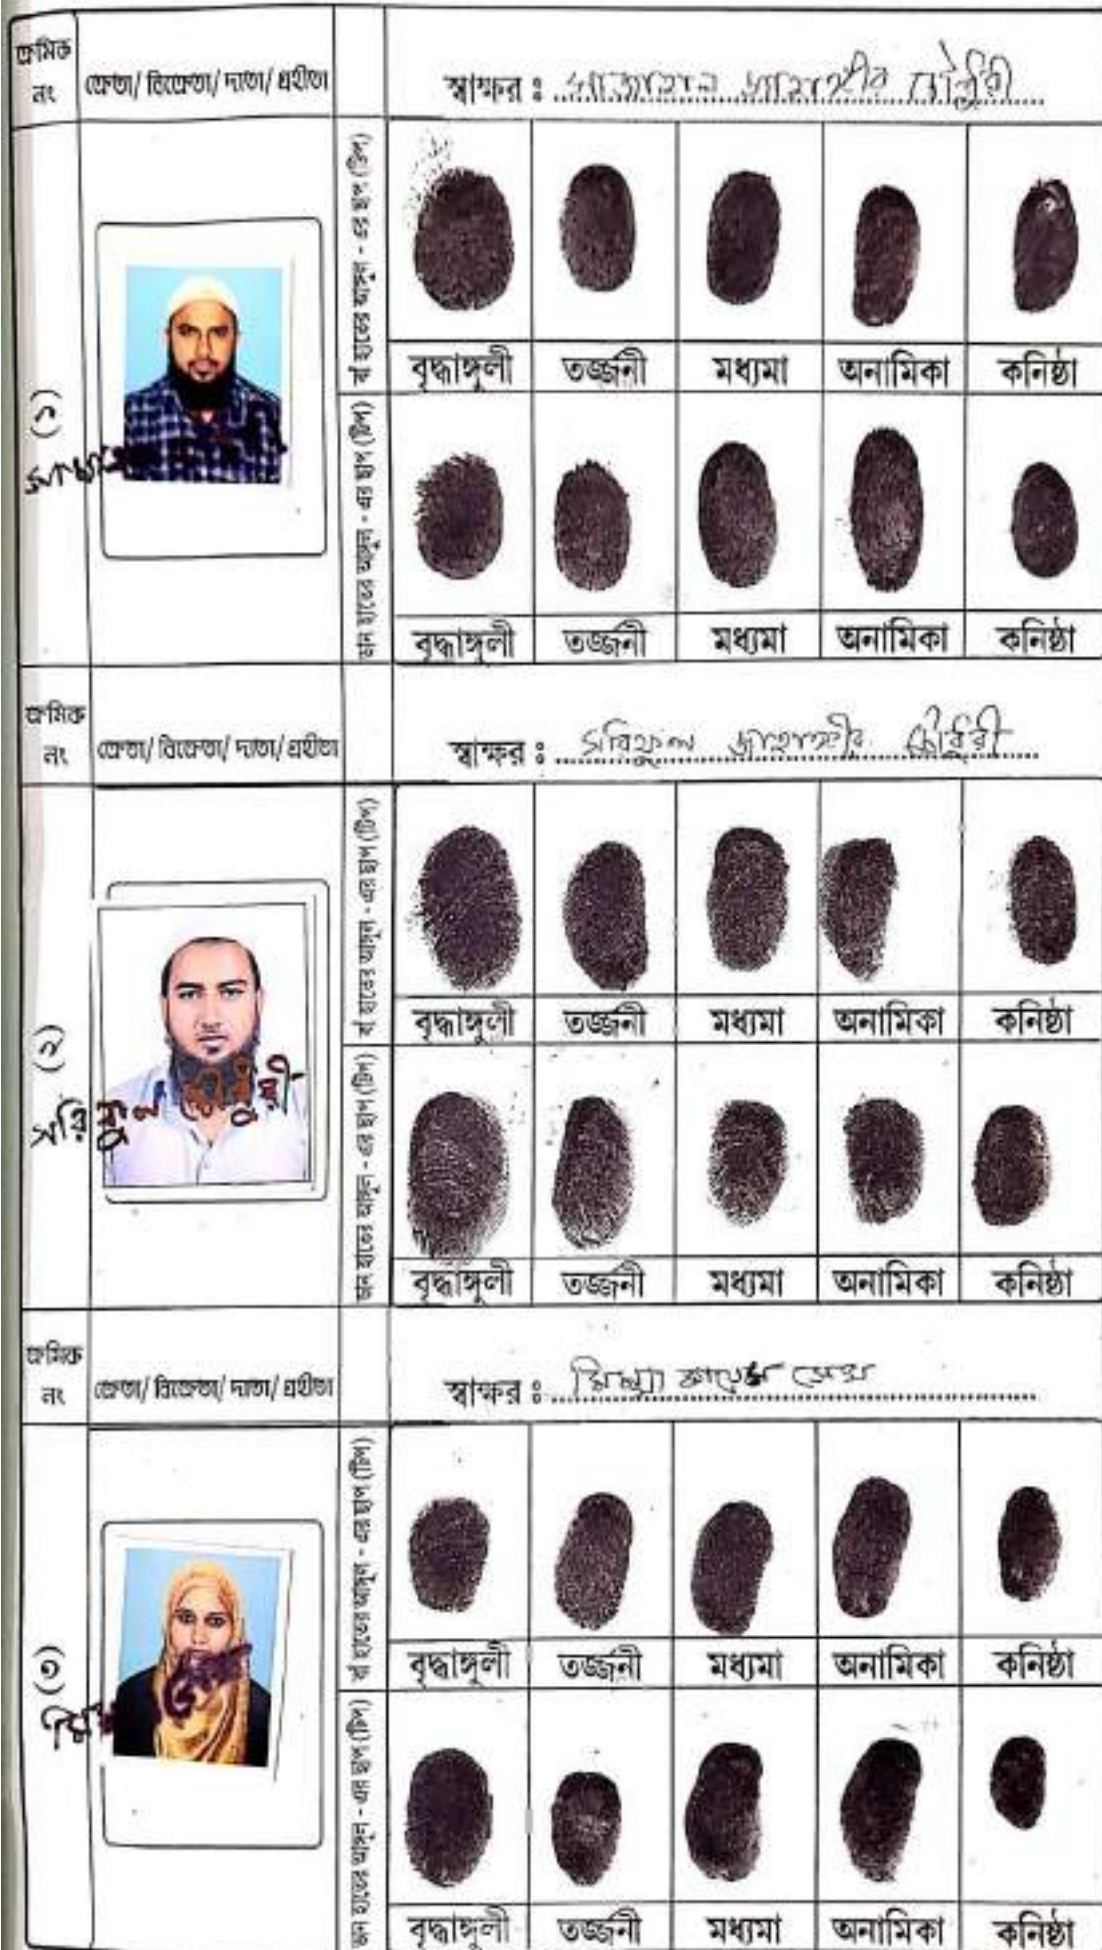 ক্রমিক নং
ক্রেতা/ বিক্রেতা/ দাতা/ গ্রহীতা
স্বাক্ষর : চৌধুরী
(১)
বাঁ হাতের আঙ্গুল - এর ছাপ (টিপ)
বৃদ্ধাঙ্গুলী তর্জ্জনী মধ্যমা অনামিকা কনিষ্ঠা
ডান হাতের আঙ্গুল - এর ছাপ (টিপ)
বৃদ্ধাঙ্গুলী তর্জ্জনী মধ্যমা অনামিকা কনিষ্ঠা
ক্রমিক নং
ক্রেতা/ বিক্রেতা/ দাতা/ গ্রহীতা
স্বাক্ষর : জাহাঙ্গীর চৌধুরী
(২)
চৌধুরী
বাঁ হাতের আঙ্গুল - এর ছাপ (টিপ)
বৃদ্ধাঙ্গুলী তর্জ্জনী মধ্যমা অনামিকা কনিষ্ঠা
ডান হাতের আঙ্গুল - এর ছাপ (টিপ)
বৃদ্ধাঙ্গুলী তর্জ্জনী মধ্যমা অনামিকা কনিষ্ঠা
ক্রমিক নং
ক্রেতা/ বিক্রেতা/ দাতা/ গ্রহীতা
স্বাক্ষর :
(৩)
বাঁ হাতের আঙ্গুল - এর ছাপ (টিপ)
বৃদ্ধাঙ্গুলী তর্জ্জনী মধ্যমা অনামিকা কনিষ্ঠা
ডান হাতের আঙ্গুল - এর ছাপ (টিপ)
বৃদ্ধাঙ্গুলী তর্জ্জনী মধ্যমা অনামিকা কনিষ্ঠা